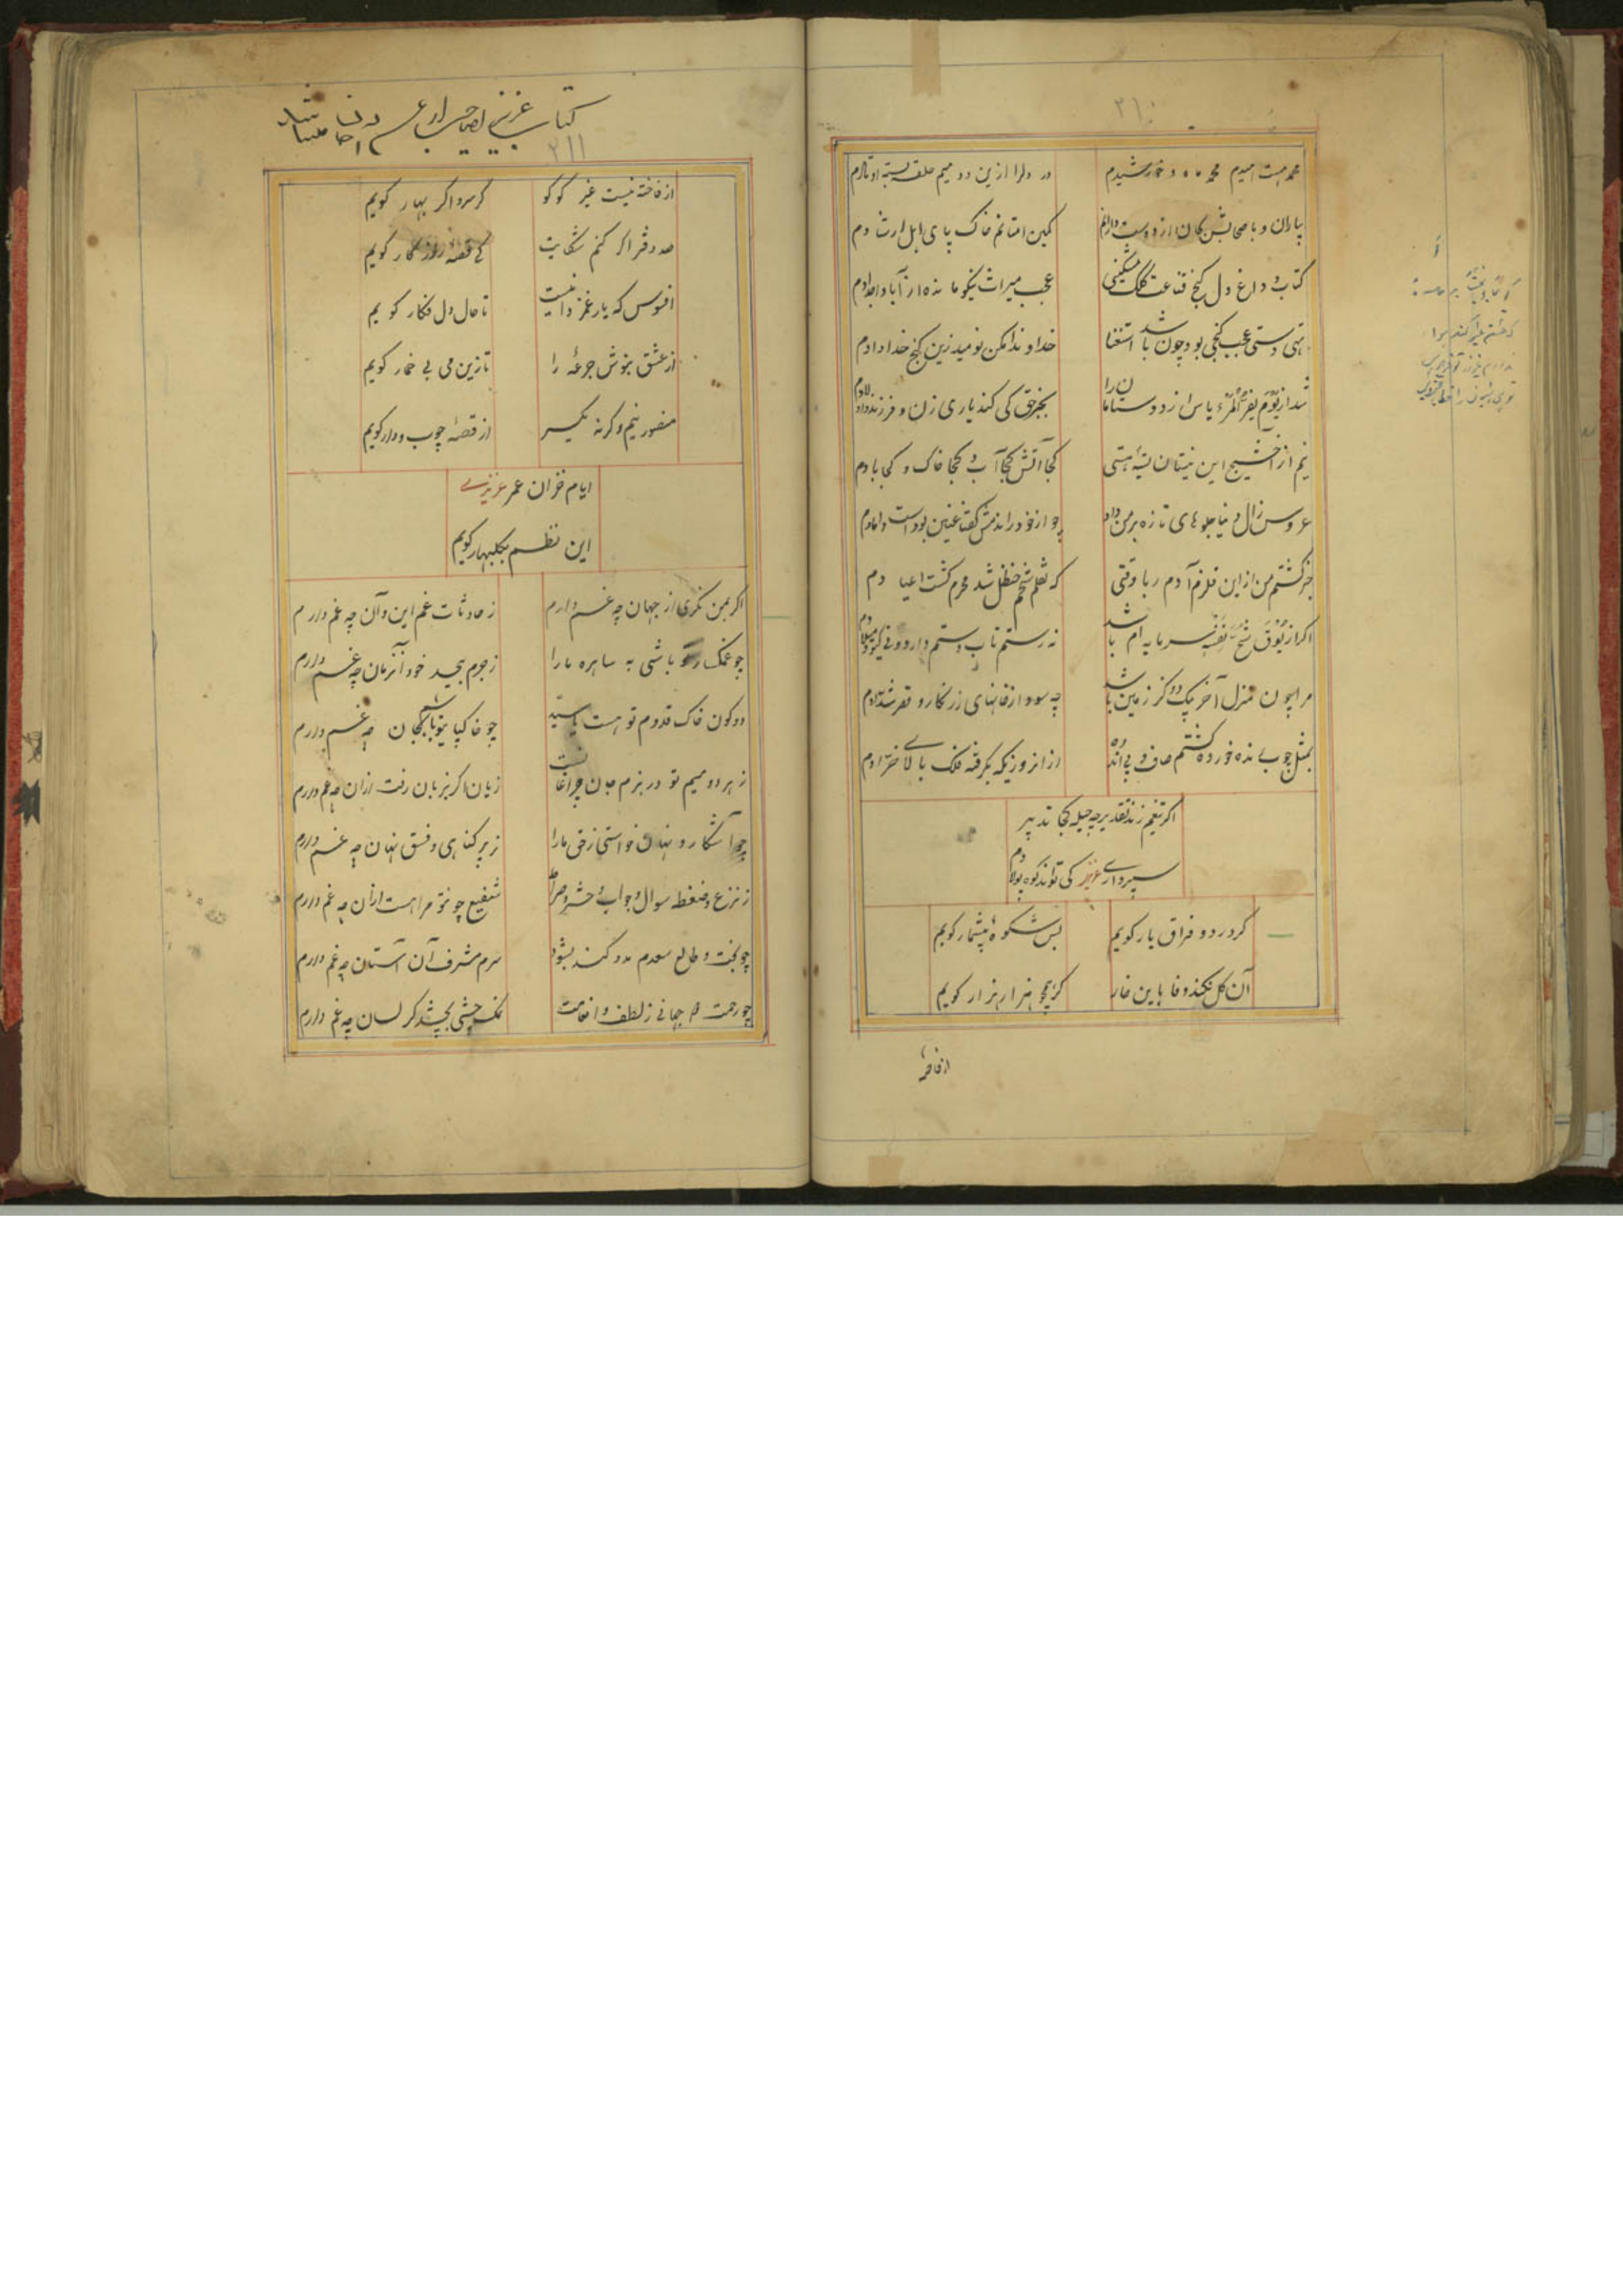 ۳۱۰
محمد هست امیدم محمد ماه و خورشیدم
در دلرا ازین دو میم حلقه بسته اوتادم
یاران و باصحابش بجان از دوست دارانم
کمین امتانم خاک پای اهل ارشادم
کتاب و داغ دل کنج قناعت ملک مسکینی
عجب میراث نیکو مانده از آبا و اجدادم
تهی دستی عجب گنجی بود چون باشد استغنا
خداوندا مکن نومید زین گنج خدادادم
شد از یوم یفر المرء یاس از دوستان ما را
بجز حق کی کند یاری زن و فرزند و دامادم
نیم از آخشیج این نیستان بیشه هستی
کجا آتش کجا آب و کجا خاک و کجا بادم
عروس زال دنیا جلوهای تازه بر من داد
چو از خود راندمش گفتا عنین بود است دامادم
خبر گشتم من از این قلزم آدم ربا وقتی
که ثقلم شحم حنظل شد
اگر از یوق شح نفسه سرمایه ام باشد
نه رستم تاب دستم دارد و نی گیو و میلادم
مرا چون منزل آخر یک دو گز زمین باشد
چه سود از خانهای زرنگار و قصر شدادم
بمثل چوب نده خورده گشتم صاف و بی اندوه
از آنروزیکه بگرفته فلک بالای خرادم
اگر تیغم زند تقدیر چه حیله کجا تدبیر
سپرداری عزیز کی تواند کوه پولادم
گر درد و فراق یار گویم
بس شکوهٔ بیشمار گویم
آن گل نکند وفا باین خار
گر همچو هزار هزار گویم
از فاخته
کتاب عزیز
۳۱۱
از فاخته نیست غیر کوکو
گر سرو اگر بهار گویم
صد دفتر اگر کنم شکایت
کی قصه روزگار گویم
افسوس که یار غمزدا نیست
تا حال دل فکار گویم
از عشق بنوش جرعهٔ را
تا زین می بی خمار گویم
منصور نیم وگرنه یکسر
از قصهٔ چوب و دار گویم
ایام خزان عمر عزیزی
این نظم بگلبهار گویم
اگر بمن نگری از جهان چه غم دارم
ز حادثات غم این و آن چه غم دارم
چو غمگسار تو باشی به ساهره ما را
ز جرم بیحد خود آنزمان چه غم دارم
دو کون خاک قدوم تو هست یا سید
چو خاکپا یتو باشم بجان چه غم دارم
ز هر دو میم تو در بزم جان چراغانست
زیان اگر بزبان رفت ازان چه غم دارم
چو آشکار و نهان خواستی ز حق ما را
ز پر گناهی و فسق نهان چه غم دارم
ز نزع و ضغط سوال و جواب و حشر و صراط
شفیع چو تو مرا هست ازان چه غم دارم
چو بخت و طالع سعدم مدد کند بشود
سرم مشرف آن آستان چه غم دارم
چو رحمت هم جهانی ز لطف و انعامت